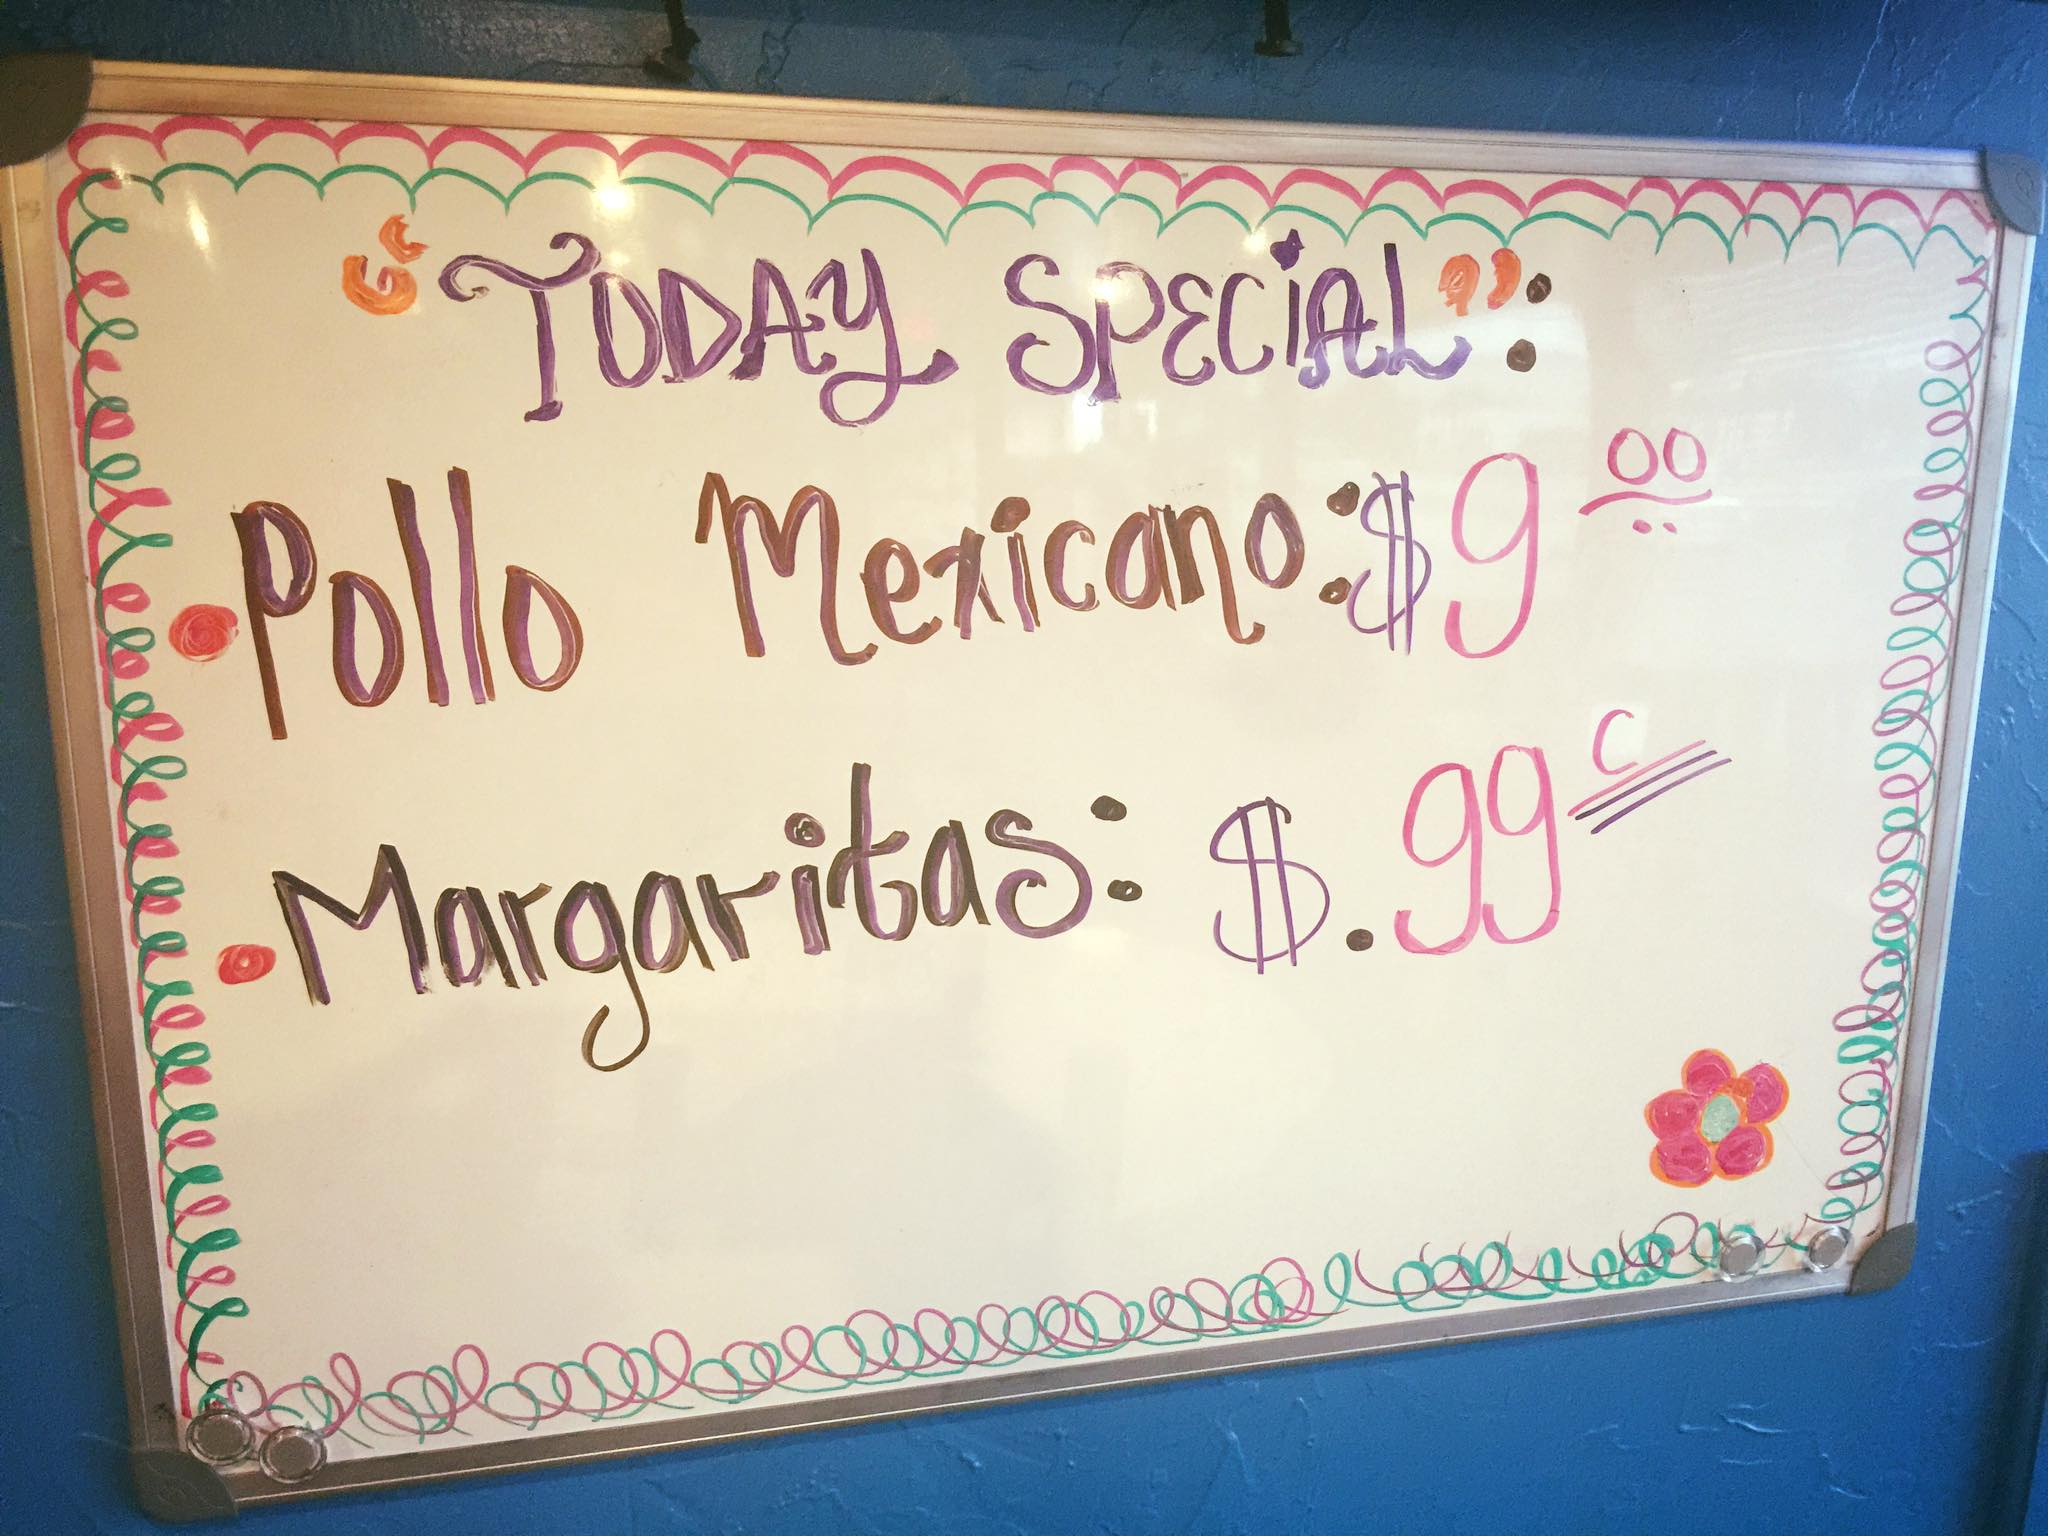 “TODAY SPECIAL”:
• Pollo Mexicano: $9 00
• Margaritas: $.99 c